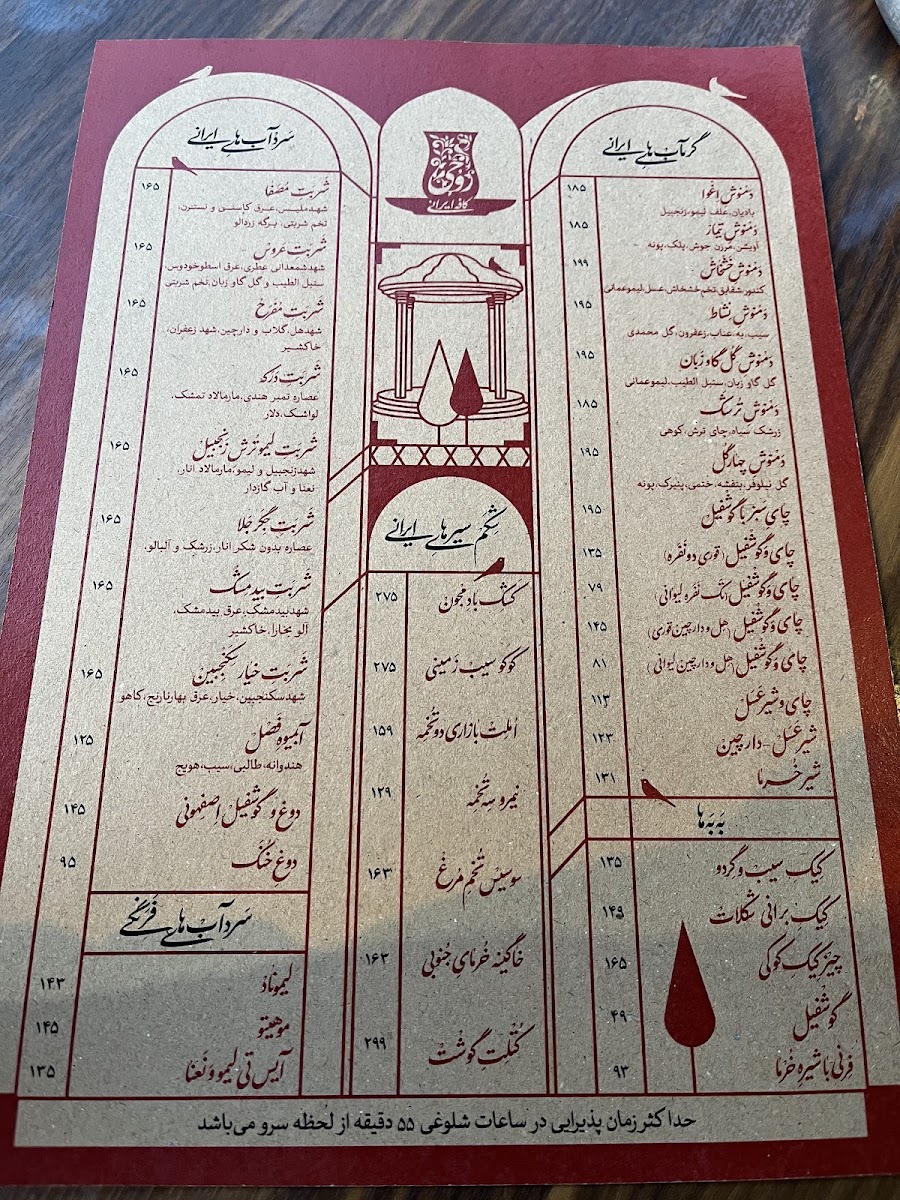 گرمآب های ایرانی
دمنوش اغوا ۱۸۵
بادیان، علف لیمو، زنجبیل
دمنوش تیماز ۱۸۵
آویشن، مرزن جوش، پلک، پونه
دمنوش خشخاش ۱۹۹
گلپر، شقایق، تخم خشخاش، عسل، لیموعمانی
دمنوش نشاط ۱۹۵
سیب، به، عناب، زعفرون، گل محمدی
دمنوش گل گاو زبان ۱۹۵
گل گاو زبان، سنبل الطیب، لیموعمانی
دمنوش ترسک ۱۸۵
زرشک سیاه، چای ترش، کوهی
دمنوش چهارگل ۱۹۵
گل نیلوفر، بنفشه، ختمی، پنیرک، پونه
چای سبز با گوشفیل ۱۹۵
چای و گوشفیل (قوری دو نفره) ۱۳۵
چای و گوشفیل (تک نفره لیوانی) ۷۹
چای و گوشفیل (هل و دارچین قوری) ۱۴۵
چای و گوشفیل (هل و دارچین لیوانی) ۸۱
چای و شیر عسل ۱۱۳
شیر عسل - دارچین ۱۲۳
شیر خرما ۱۳۱
به به ها
کیک سیب و گردو ۱۳۵
کیک برانی شکلات ۱۴۹
چیز کیک کوکی ۱۶۵
گوشفیل ۴۹
فرنی با شیره خرما ۹۳
کافه ایرانی
شکم سیر های ایرانی
کشک بادمجون ۲۷۵
کوکو سیب زمینی ۲۷۵
املت بازاری دو تخمه ۱۵۹
نیمرو سه تخمه ۱۲۹
سوسیس تخم مرغ ۱۶۳
خاگینه خرمای جنوبی ۱۶۳
کتلت گوشت ۲۹۹
سردآب های ایرانی
شربت مصفا ۱۶۵
شهدملیس، عرق کاسنی و نسترن،
تخم شربتی، برگه زردآلو
شربت عروس ۱۶۵
شهدشمعدانی عطری، عرق اسطوخودوس،
سنبل الطیب و گل گاو زبان، تخم شربتی
شربت مفرح ۱۶۵
شهدهل، گلاب و دارچین، شهد زعفران،
خاکشیر
شربت درکه ۱۶۵
عصاره تمبر هندی، مارمالاد تمشک،
لواشک، دلار
شربت لیمو ترش زنجبیل ۱۶۵
شهدزنجبیل و لیمو، مارمالاد انار،
نعنا و آب گازدار
شربت جگر جلا ۱۶۵
عصاره بدون شکر انار، زرشک و آلبالو،
شربت بیدمشک ۱۶۵
شهدبیدمشک، عرق بیدمشک،
آلو بخارا، خاکشیر
شربت خیار سکنجبین ۱۶۵
شهدسکنجبین، خیار، عرق بهارنارنج، کاهو
آبمیوه فصل ۱۲۵
هندوانه، طالبی، سیب، هویج
دوغ و گوشفیل اصفهونی ۱۴۵
دوغ خنک ۹۵
سردآب های فرنگی
لیموناد ۱۴۳
موهیتو ۱۴۵
آیس تی لیمو و نعنا ۱۳۵
حداکثر زمان پذیرایی در ساعات شلوغی ۵۵ دقیقه از لحظه سرو می‌باشد